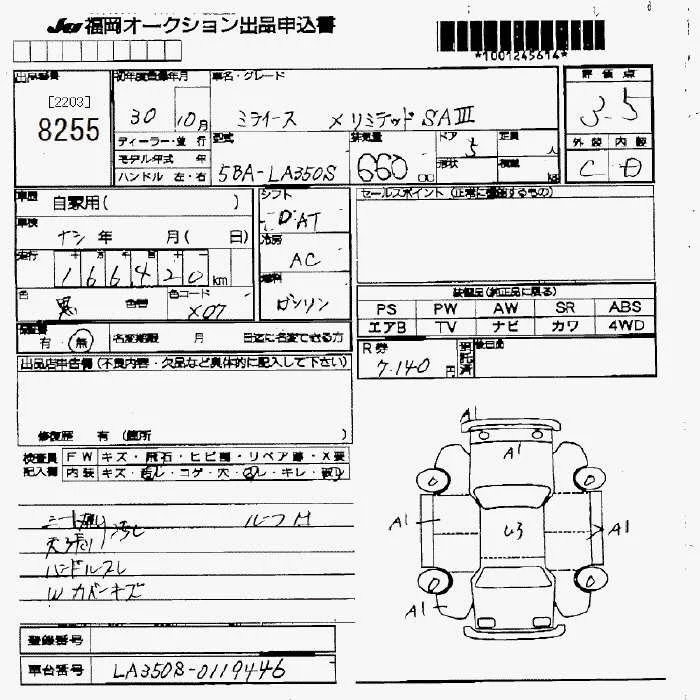 JU 福岡オークション出品申込書
*1001245614*
出品番号
[2203]
8255
初年度登録年月
30 10月
ディーラー・並行
モデル年式 年
ハンドル 左・右
車名・グレード
ミライース X リミテッド SAⅢ
型式
5BA-LA350S
排気量
660 cc
ドア
5
形状
定員
人
積載
kg
評価点
3.5
外装 内装
C D
車歴
自家用( )
車検
ナシ 年 月( 日)
走行
十 万 千 百 十
166420 km
色
黒
色替
色コード
X07
シフト
DAT
冷房
AC
燃料
ガソリン
セールスポイント (正常に機能するもの)
装備品(純正品に限る)
PS PW AW SR ABS
エアB TV ナビ カワ 4WD
保証書
有・無
名変期限 月 日迄に名変できる方
R券
7.140 円
預託済
後日品
出品店申告欄 (不良内容・欠品など具体的に記入して下さい)
修復歴 有 (箇所 )
検査員記入欄
FW キズ・飛石・ヒビ割・リペア跡・X要
内装 キズ・汚レ・コゲ・穴・スレ・キレ・破レ
シート張り
天張り 汚レ
ルーフ M
ハンドルスレ
W カバーキズ
A1
A1
0 0
A1 U3 A1
0 0
A1
登録番号
車台番号
LA350S-0119446